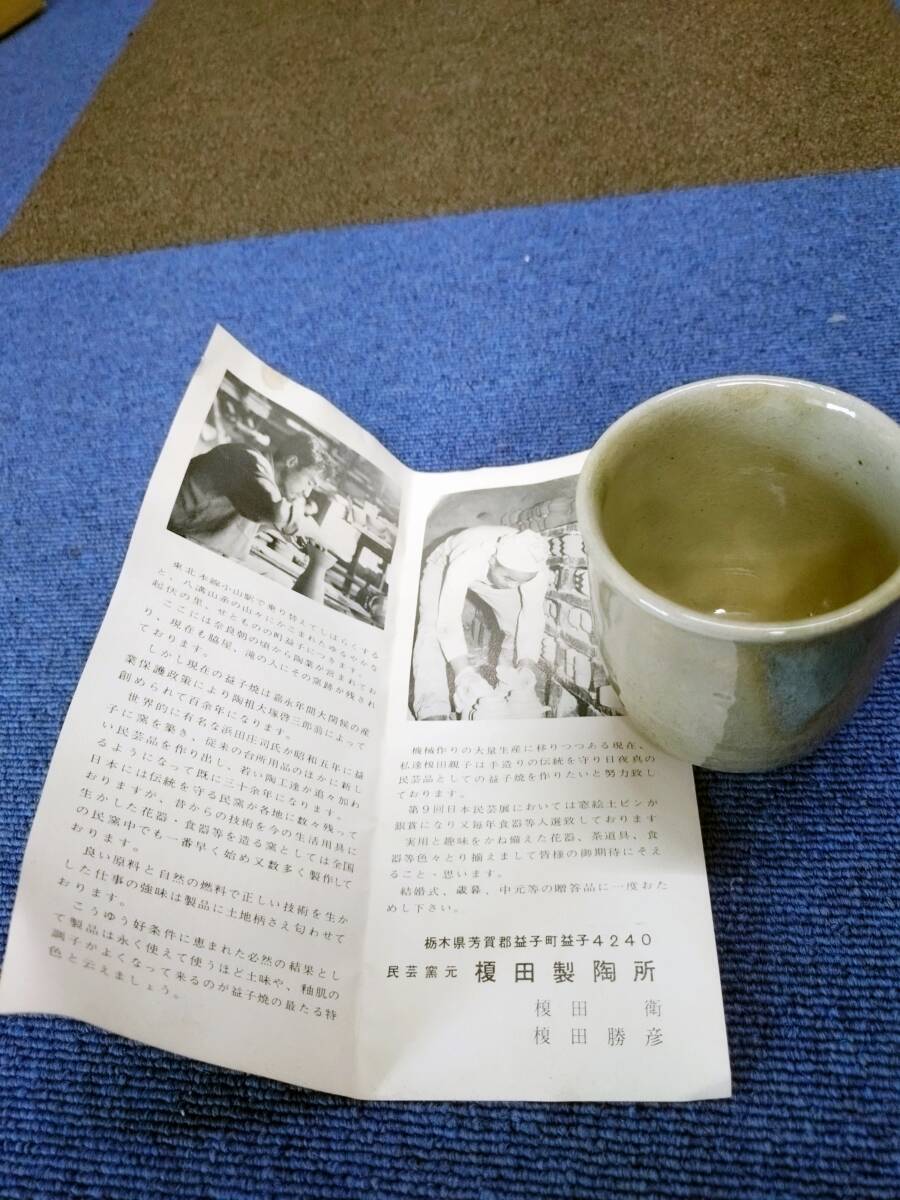 東北本線小山駅で乗り替えてしばらくする
と、八溝山系の山々にかこまれたゆるやかな
起伏の里、せとものの町益子につきます。
ここには奈良朝の頃から陶業が営まれてお
り、現在も脇屋、滝の入にその窯跡が残され
ております。
しかし現在の益子焼は嘉永年間大関候の産
業保護政策により陶祖大塚啓三郎翁によって
創められて百余年になります。
世界的に有名な浜田庄司氏が昭和五年に益
子に窯を築き、従来の台所用品のほかに新し
い民芸品を作り出し、若い陶工達が追々加わ
るようになって既に三十余年になります。
日本には伝統を守る民窯が各地に数々残って
おりますが、昔からの技術を今の生活用具に
生かした花器・食器等を造る窯としては全国
の民窯中でも一番早く始め又数多く製作して
おります。
良い原料と自然の燃料で正しい技術を生か
した仕事の強味は製品に土地柄さえ匂わせて
おります。
こうゆう好条件に恵まれた必然の結果とし
て製品は永く使えて使うほど土味や、釉肌の
調子がよくなって来るのが益子焼の最たる特
色と云えましょう。
機械作りの大量生産に移りつつある現在、
私達榎田親子は手造りの伝統を守り日夜真の
民芸品としての益子焼を作りたいと努力致し
ております。
第9回日本民芸展においては窓絵土ビンが
銀賞になり又毎年食器等入選致しております
実用と趣味をかね備えた花器、茶道具、食
器等色々とり揃えまして皆様の御期待にそえ
ること・思います。
結婚式、歳暮、中元等の贈答品に一度おた
めし下さい。
栃木県芳賀郡益子町益子4240
民芸窯元 榎田製陶所
榎田 衛
榎田勝彦